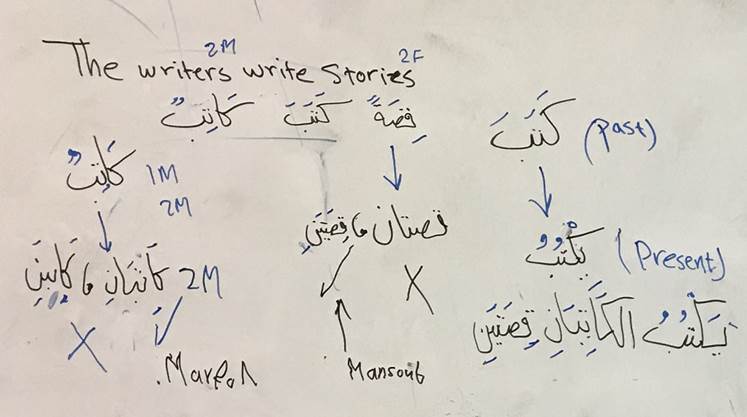 2M 2F
The writers write stories
كَاتِبٌ كَتَبَ قِصَةً
كَتَبَ (past)
كَاتِبٌ 1M
2M
قصتان ، قِصَتَينِ
يَكْتُبُ (Present)
كَاتِبَانِ ، كَاتِبَينِ 2M
X ✓
✓ X
يَكْتُبُ الكَاتِبَانِ قِصَتَينِ
Marfoh
Mansoub